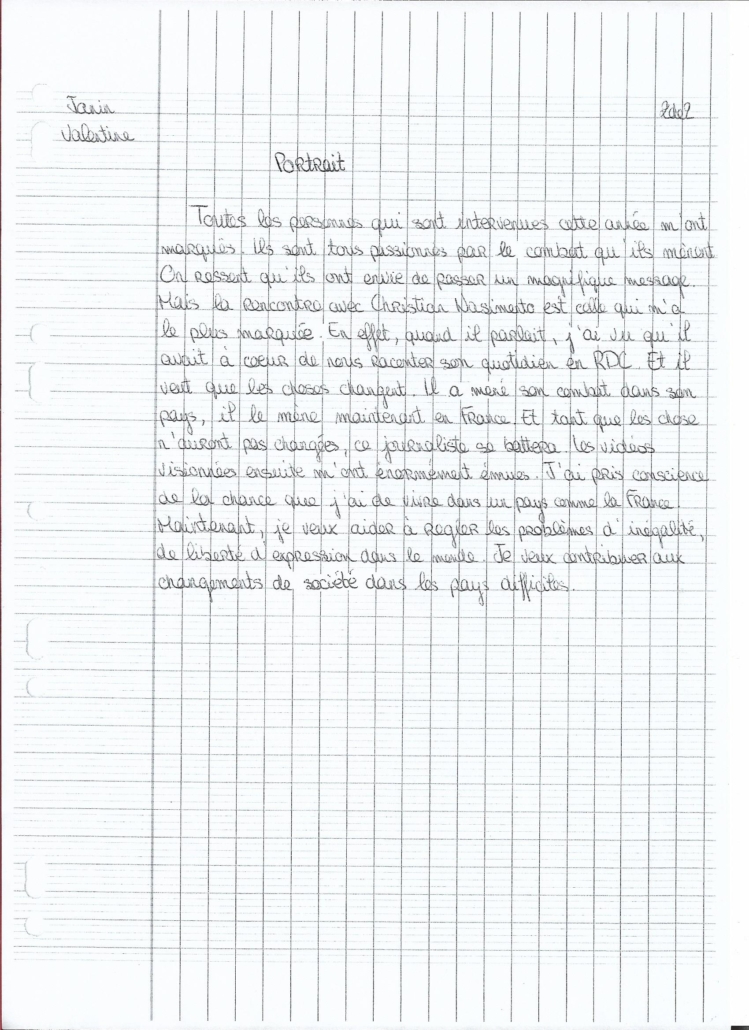 Janin
2de2
Valentine
Portrait
Toutes les personnes qui sont intervenues cette année m'ont
marqués. Ils sont tous passionnés par le combat qu'ils mènent
On ressent qu'ils ont envie de passer un magnifique message.
Mais la rencontre avec Christian Nasimento est celle qui m'a
le plus marquée. En effet, quand il parlait, j'ai vu qu'il
avait à coeur de nous raconter son quotidien en RDC. Et il
veut que les choses changent. Il a mené son combat dans son
pays, il le mène maintenant en France. Et tant que les chose
n'auront pas changées, ce journaliste se battera. Les vidéos
visionnées ensuite m'ont énormément émues. J'ai pris conscience
de la chance que j'ai de vivre dans un pays comme la France.
Maintenant, je veux aider à regler les problèmes d'inégalité,
de liberté d'expression dans le monde. Je veux contribuer aux
changements de société dans les pays difficiles.